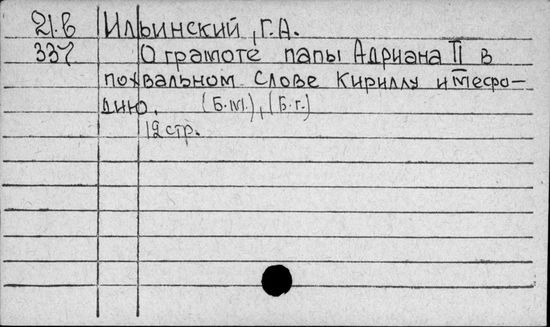 21.в Ильинский, Г.А.
337 О грамоте папы Адриана II в
похвальном Слове Кириллу и Мефо-
дию. (Б.м.), (Б.г.)
12 стр.